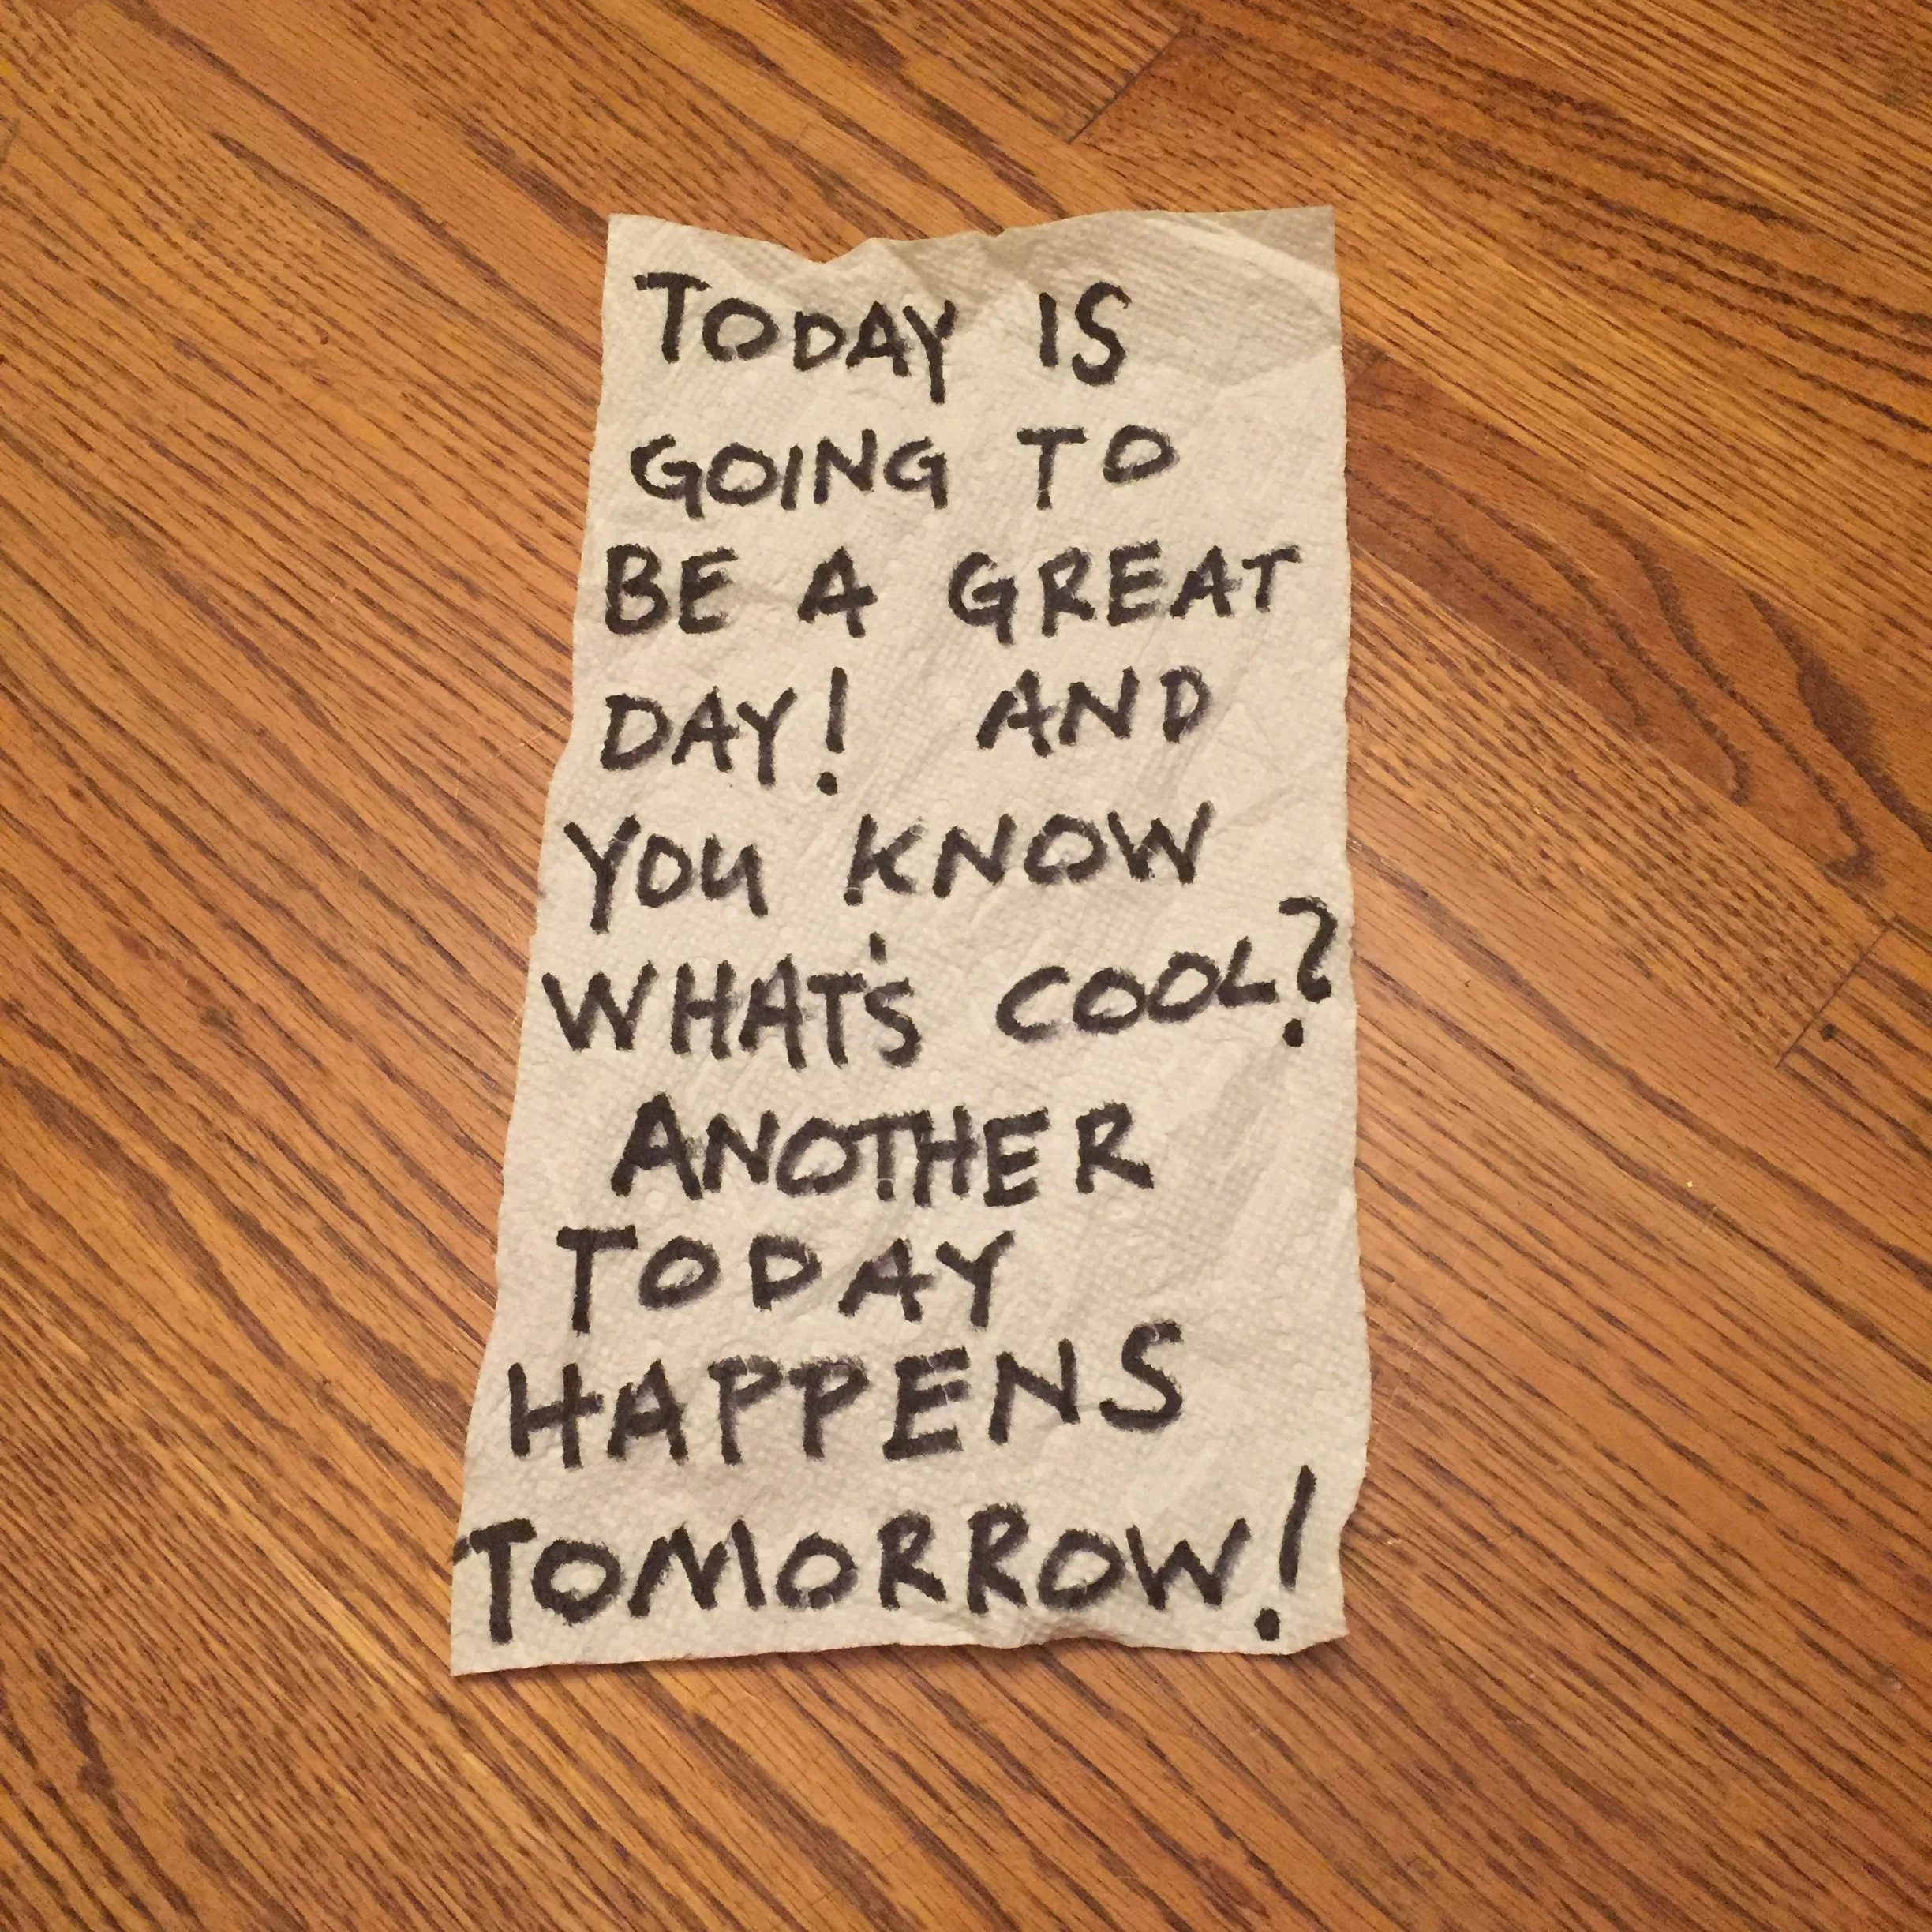 TODAY IS
GOING TO
BE A GREAT
DAY! AND
YOU KNOW
WHAT'S COOL?
ANOTHER
TODAY
HAPPENS
TOMORROW!